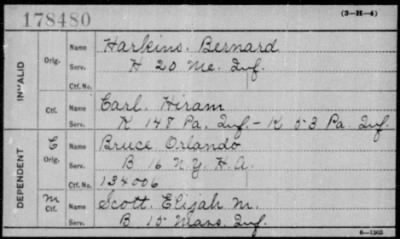 178480
(3—H—4)
INVALID
Orig.
Name Harkins, Bernard
Serv. H 20 Me. Inf.
Ctf. No.
Ctf.
Name Earl, Hiram
Serv. K 148 Pa. Inf. - K 53 Pa. Inf.
DEPENDENT
C
Orig.
Name Bruce Orlando
Serv. B 16 N.Y. H.A.
Ctf. No. 134006
M
Ctf.
Name Scott, Elijah M.
Serv. B 15 Mass. Inf.
6—1303